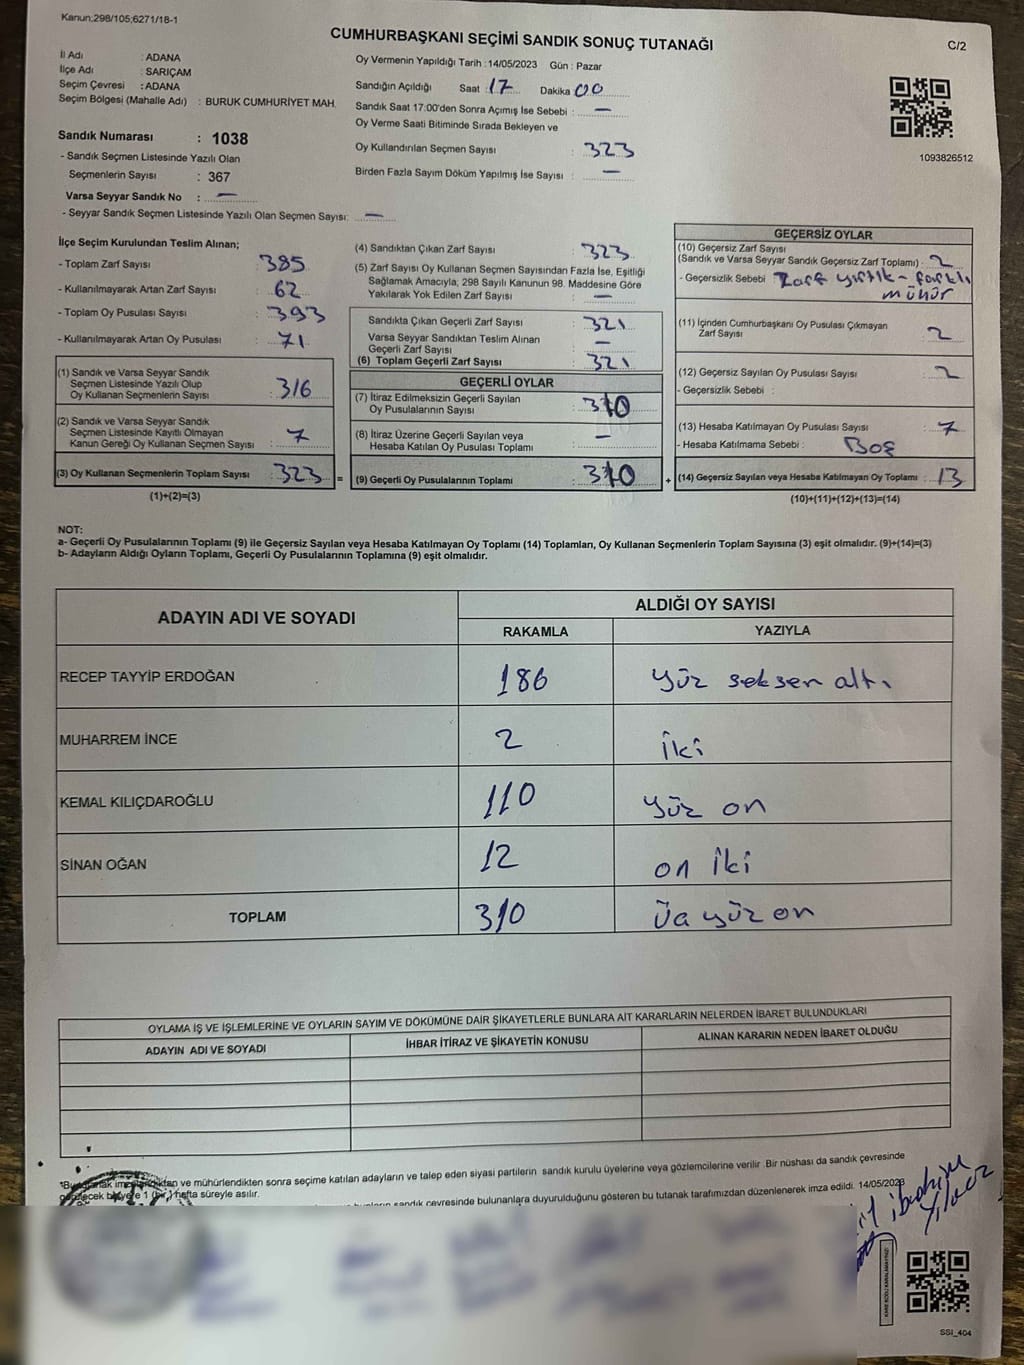 Kanun;298/105;6271/18-1
CUMHURBAŞKANI SEÇİMİ SANDIK SONUÇ TUTANAĞI
C/2
İl Adı : ADANA
İlçe Adı : SARIÇAM
Seçim Çevresi : ADANA
Seçim Bölgesi (Mahalle Adı) : BURUK CUMHURİYET MAH.
Sandık Numarası : 1038
- Sandık Seçmen Listesinde Yazılı Olan
Seçmenlerin Sayısı : 367
Varsa Seyyar Sandık No : —
- Seyyar Sandık Seçmen Listesinde Yazılı Olan Seçmen Sayısı: —
Oy Vermenin Yapıldığı Tarih : 14/05/2023 Gün : Pazar
Sandığın Açıldığı Saat : 17 Dakika 00
Sandık Saat 17:00'den Sonra Açımış İse Sebebi : —
Oy Verme Saati Bitiminde Sırada Bekleyen ve
Oy Kullandırılan Seçmen Sayısı : 323
Birden Fazla Sayım Döküm Yapılmış İse Sayısı : —
1093826512
İlçe Seçim Kurulundan Teslim Alınan;
- Toplam Zarf Sayısı : 385
- Kullanılmayarak Artan Zarf Sayısı : 62
- Toplam Oy Pusulası Sayısı : 393
- Kullanılmayarak Artan Oy Pusulası : 71
(1) Sandık ve Varsa Seyyar Sandık
Seçmen Listesinde Yazılı Olup
Oy Kullanan Seçmenlerin Sayısı : 316
(2) Sandık ve Varsa Seyyar Sandık
Seçmen Listesinde Kayıtlı Olmayan
Kanun Gereği Oy Kullanan Seçmen Sayısı : 7
(3) Oy Kullanan Seçmenlerin Toplam Sayısı : 323 =
(1)+(2)=(3)
(4) Sandıktan Çıkan Zarf Sayısı : 323
(5) Zarf Sayısı Oy Kullanan Seçmen Sayısından Fazla İse, Eşitliği
Sağlamak Amacıyla; 298 Sayılı Kanunun 98. Maddesine Göre
Yakılarak Yok Edilen Zarf Sayısı : —
Sandıkta Çıkan Geçerli Zarf Sayısı : 321
Varsa Seyyar Sandıktan Teslim Alınan
Geçerli Zarf Sayısı : —
(6) Toplam Geçerli Zarf Sayısı : 321
GEÇERLİ OYLAR
(7) İtiraz Edilmeksizin Geçerli Sayılan
Oy Pusulalarının Sayısı : 310
(8) İtiraz Üzerine Geçerli Sayılan veya
Hesaba Katılan Oy Pusulası Toplamı : —
(9) Geçerli Oy Pusulalarının Toplamı : 310 +
GEÇERSİZ OYLAR
(10) Geçersiz Zarf Sayısı
(Sandık ve Varsa Seyyar Sandık Geçersiz Zarf Toplamı) : 2
- Geçersizlik Sebebi : Zarf yırtık - farklı
mühür
(11) İçinden Cumhurbaşkanı Oy Pusulası Çıkmayan
Zarf Sayısı : 2
(12) Geçersiz Sayılan Oy Pusulası Sayısı : 2
- Geçersizlik Sebebi :
(13) Hesaba Katılmayan Oy Pusulası Sayısı : 7
- Hesaba Katılmama Sebebi : Boş
(14) Geçersiz Sayılan veya Hesaba Katılmayan Oy Toplamı : 13
(10)+(11)+(12)+(13)=(14)
NOT:
a- Geçerli Oy Pusulalarının Toplamı (9) ile Geçersiz Sayılan veya Hesaba Katılmayan Oy Toplamı (14) Toplamları, Oy Kullanan Seçmenlerin Toplam Sayısına (3) eşit olmalıdır. (9)+(14)=(3)
b- Adayların Aldığı Oyların Toplamı, Geçerli Oy Pusulalarının Toplamına (9) eşit olmalıdır.
ADAYIN ADI VE SOYADI
ALDIĞI OY SAYISI
RAKAMLA YAZIYLA
RECEP TAYYİP ERDOĞAN 186 yüz seksen altı
MUHARREM İNCE 2 iki
KEMAL KILIÇDAROĞLU 110 yüz on
SİNAN OĞAN 12 on iki
TOPLAM 310 üa yüz on
OYLAMA İŞ VE İŞLEMLERİNE VE OYLARIN SAYIM VE DÖKÜMÜNE DAİR ŞİKAYETLERLE BUNLARA AİT KARARLARIN NELERDEN İBARET BULUNDUKLARI
ADAYIN ADI VE SOYADI İHBAR İTİRAZ VE ŞİKAYETİN KONUSU ALINAN KARARIN NEDEN İBARET OLDUĞU
ve mühürlendikten sonra seçime katılan adayların ve talep eden siyasi partilerin sandık kurulu üyelerine veya gözlemcilerine verilir. Bir nüshası da sandık çevresinde
hafta süreyle asılır.
sandık çevresinde bulunanlara duyurulduğunu gösteren bu tutanak tarafımızdan düzenlenerek imza edildi. 14/05/2023
ibrahim
Yılmaz
SSI_404